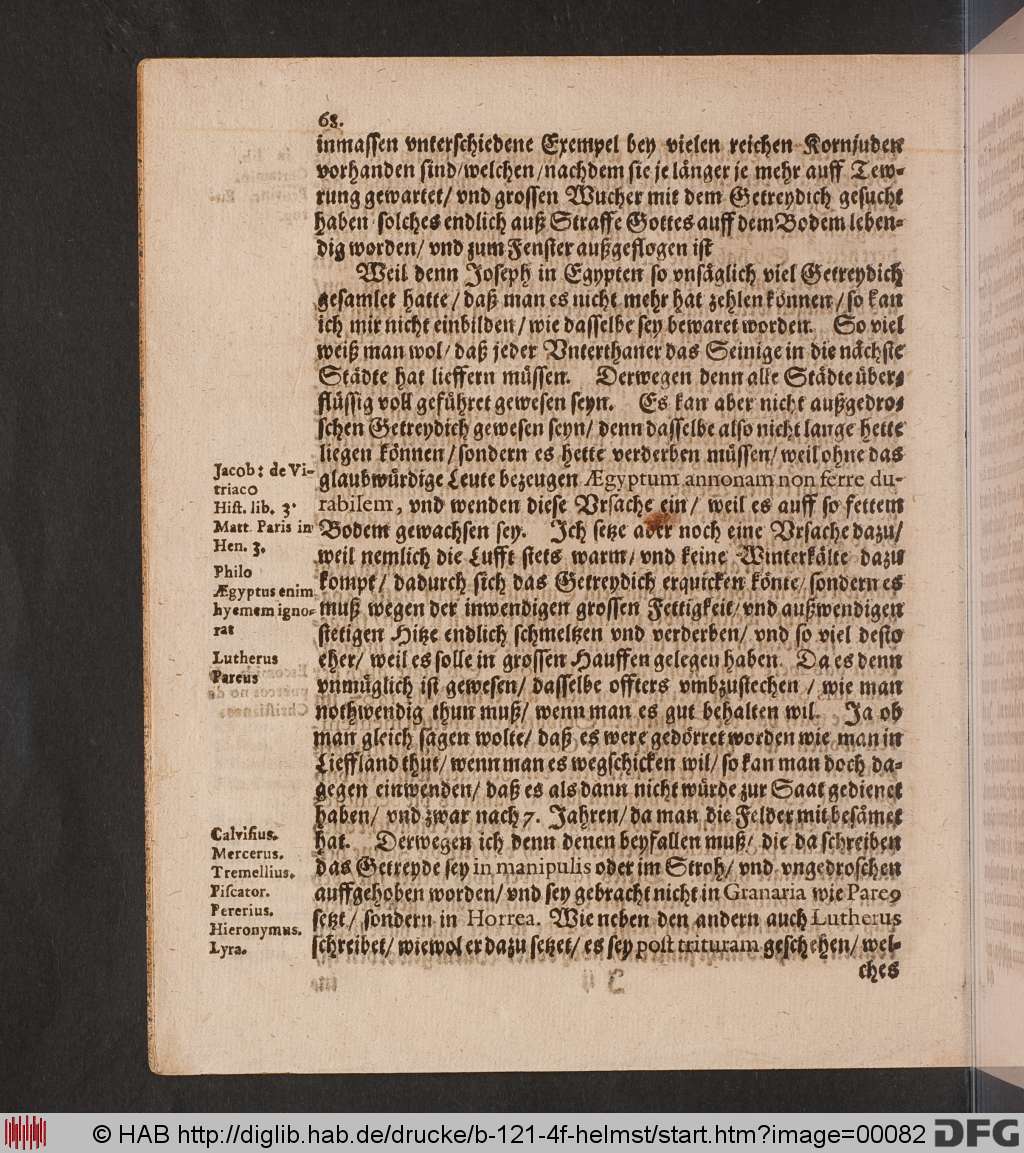 68.
inmassen vnterschiedene Exempel bey vielen reichen Kornjuden
vorhanden sind/welchen/nachdem sie je länger je mehr auff Tew-
rung gewartet/ vnd grossen Wucher mit dem Getreydich gesucht
haben solches endlich auß Straffe Gottes auff dem Bodem leben-
dig worden/ vnd zum Fenster außgeflogen ist
Weil denn Joseph in Egypten so vnsäglich viel Getreydich
gesamlet hatte/ daß man es nicht mehr hat zehlen können/ so kan
ich mir nicht einbilden/ wie dasselbe sey bewaret worden. So viel
weiß man wol/ daß jeder Vnterthaner das Seinige in die nächste
Städte hat lieffern müssen. Derwegen denn alle Städte über-
flüssig voll geführet gewesen seyn. Es kan aber nicht außgedro-
schen Getreydich gewesen seyn/ denn dasselbe also nicht lange hette
liegen können/ sondern es hette verderben müssen/ weil ohne das
glaubwürdige Leute bezeugen Ægyptum annonam non ferre du-
rabilem, vnd wenden diese Vrsache ein/ weil es auff so fettem
Bodem gewachsen sey. Ich setze aber noch eine Vrsache dazu/
weil nemlich die Lufft stets warm/ vnd keine Winterkälte dazu
kompt/ dadurch sich das Getreydich erquicken könte/ sondern es
muß wegen der inwendigen grossen Fettigkeit/ vnd außwendigen
stetigen Hitze endlich schmeltzen vnd verderben/ vnd so viel desto
eher/ weil es solle in grossen Hauffen gelegen haben. Da es denn
vnmüglich ist gewesen/ dasselbe offters vmbzustechen / wie man
nothwendig thun muß/ wenn man es gut behalten wil. Ja ob
man gleich sagen wolte/ daß es were gedörret worden wie man in
Lieffland thut/ wenn man es wegschicken wil/ so kan man doch da-
gegen einwenden/ daß es als dann nicht würde zur Saat gedienet
haben/ vnd zwar nach 7. Jahren/ da man die Felder mit besämet
hat. Derwegen ich denn denen beyfallen muß/ die da schreiben
das Getreyde sey in manipulis oder im Stroh/ vnd vngedroschen
auffgehoben worden/ vnd sey gebracht nicht in Granaria wie Pareꝰ
setzt/ sondern in Horrea. Wie neben den andern auch Lutherus
schreibet/ wiewol er dazu setzet/ es sey post trituram geschehen/ wel-
ches
Jacob: de Vi-
triaco
Hist. lib. 3.
Matt. Paris in
Hen. 3.
Philo
Ægyptus enim
hyemem igno-
rat
Lutherus
Pareus
Calvisius.
Mercerus.
Tremellius.
Piscator.
Pererius.
Hieronymus.
Lyra.
© HAB http://diglib.hab.de/drucke/b-121-4f-helmst/start.htm?image=00082
DFG